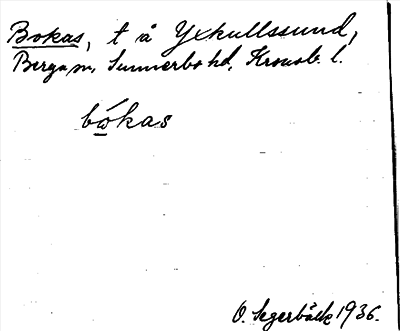 Bokas, t å Yxkullssund,
Berga sn, Sunnerbo hd, Kronob. l.
bώkas
O. Segerbäck 1936.